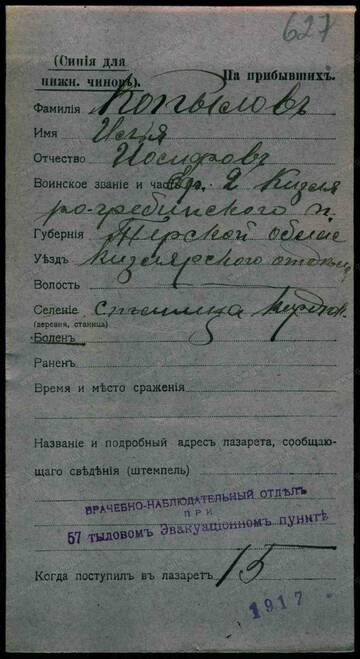 627
(Синія для
нижн. чиновъ).
На прибывшихъ.
Фамилія Копыловъ
Имя Исая
Отчество Иосифовъ
Воинское званіе и часть 2 Кизля
ро-гребинского п.
Губернія Терской облас
Уѣздъ Кизлярского отдела
Волость
Селеніе станица
(деревня, станица)
Боленъ
Раненъ
Время и мѣсто сраженія
Названіе и подробный адресъ лазарета, сообщаю-
щаго свѣдѣнія (штемпель)
ВРАЧЕБНО-НАБЛЮДАТЕЛЬНЫЙ ОТДѢЛЪ
ПРИ
57 тыловомъ Эвакуаціонномъ пунктѣ
Когда поступилъ въ лазаретъ 15
1917